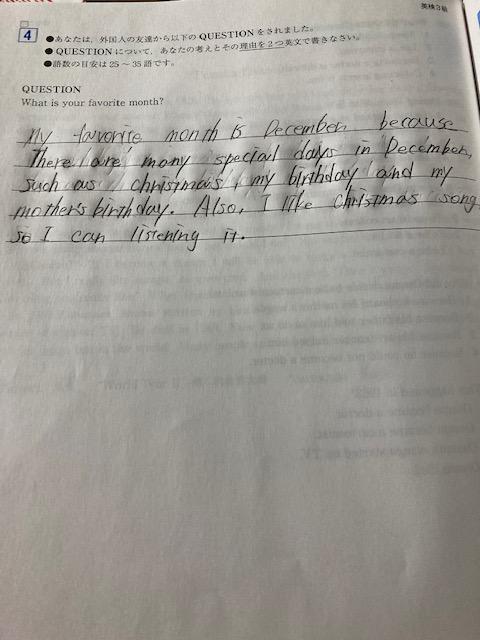 英検3級
4
●あなたは、外国人の友達から以下のQUESTIONをされました。
●QUESTIONについて、あなたの考えとその理由を2つ英文で書きなさい。
●語数の目安は25～35語です。
QUESTION
What is your favorite month?
My favorite month is December, because
There are many special days in December,
such as christmas, my birthday and my
mother's birthday. Also, I like christmas song
so I can listening it.